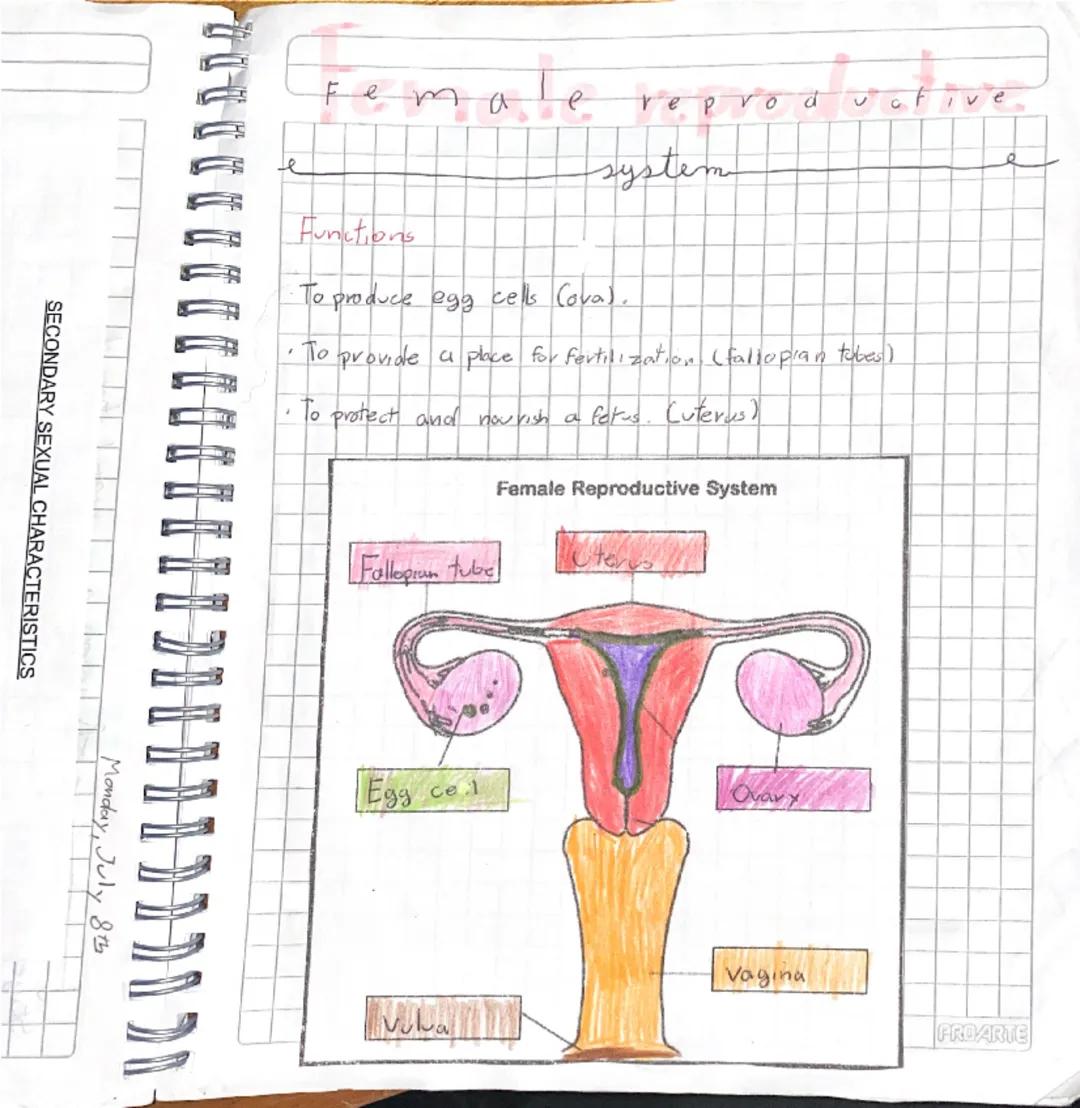 SECONDARY SEXUAL CHARACTERISTICS
Monday, July 8th
Female reproductive
system
Functions
· To produce egg cells (ova).
· To provide a place for fertilization. (fallopian tubes)
· To protect and nourish a fetus. (uterus)
Female Reproductive System
Fallopian tube
Uterus
Egg cell
Ovary
Vagina
Vulva
PROARTE